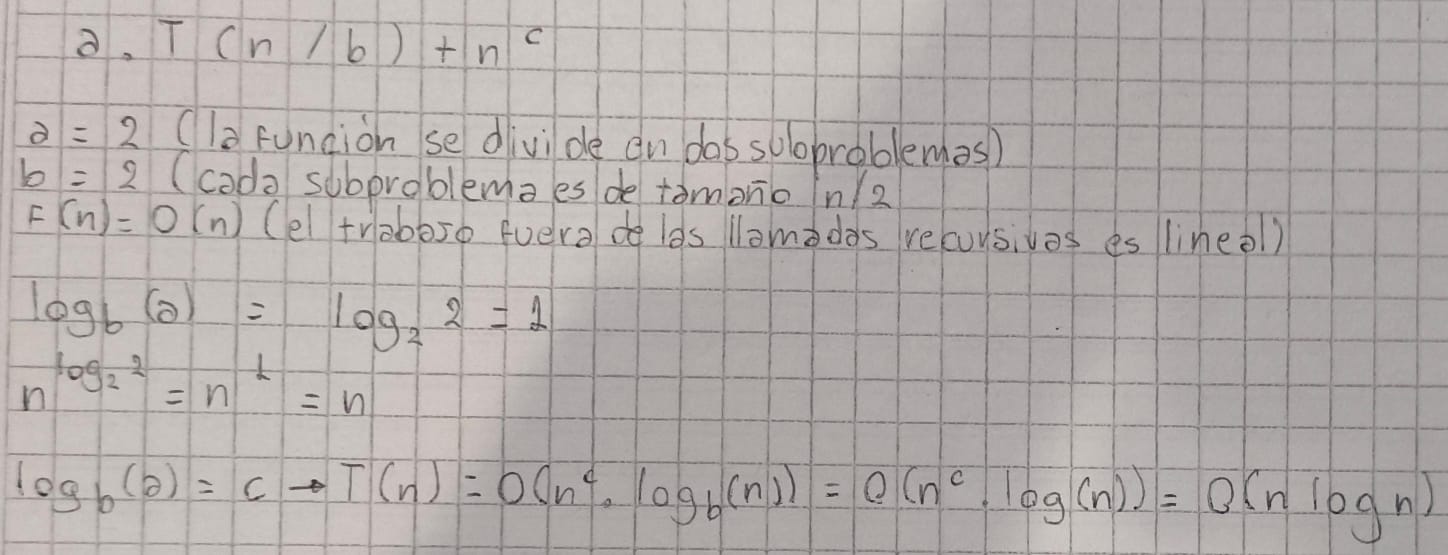 a. T(n/b) + n^c
a = 2 (la función se divide en dos subproblemas)
b = 2 (cada subproblema es de tamaño n/2
F(n) = O(n) (el trabajo fuera de las llamadas recursivas es lineal)
log_b(a) = log_2 2 = 1
n^{log_2 2} = n^1 = n
log_b(a) = c → T(n) = O(n^c. log_b(n)) = O(n^c. log(n)) = O(n log n)